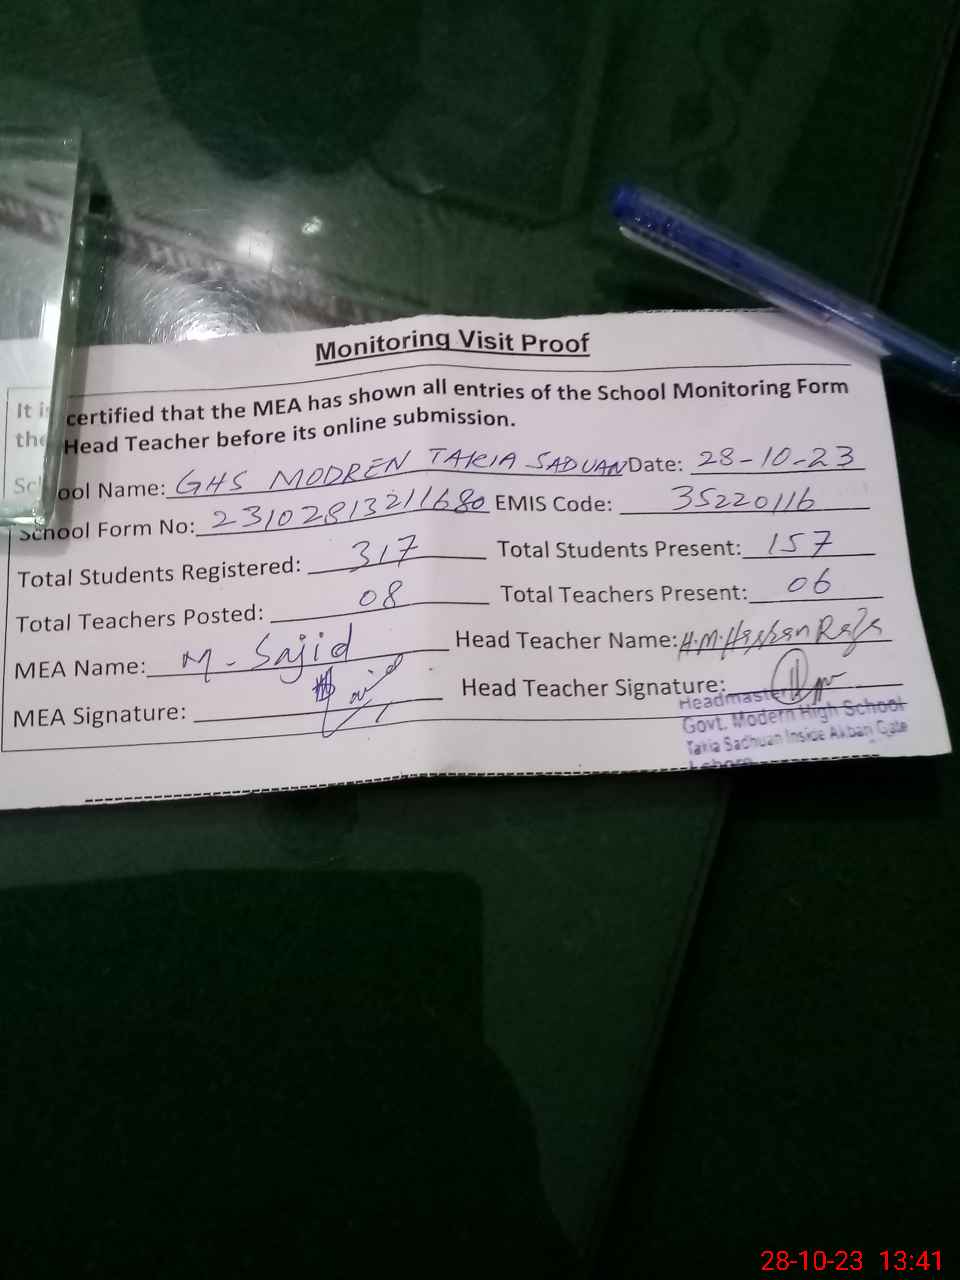 Monitoring Visit Proof
It is certified that the MEA has shown all entries of the School Monitoring Form
the Head Teacher before its online submission.
School Name: GHS MODREN TAKIA SADUAN Date: 28-10-23
School Form No: 23102813211680 EMIS Code: 35220116
Total Students Registered: 317 Total Students Present: 157
Total Teachers Posted: 08 Total Teachers Present: 06
MEA Name: M. Sajid Head Teacher Name: H.M. Hassan Raza
MEA Signature: Head Teacher Signature:
Headmaster
Govt. Modern High School
Takia Sadhuan Inside Akbari Gate
Lahore
28-10-23 13:41